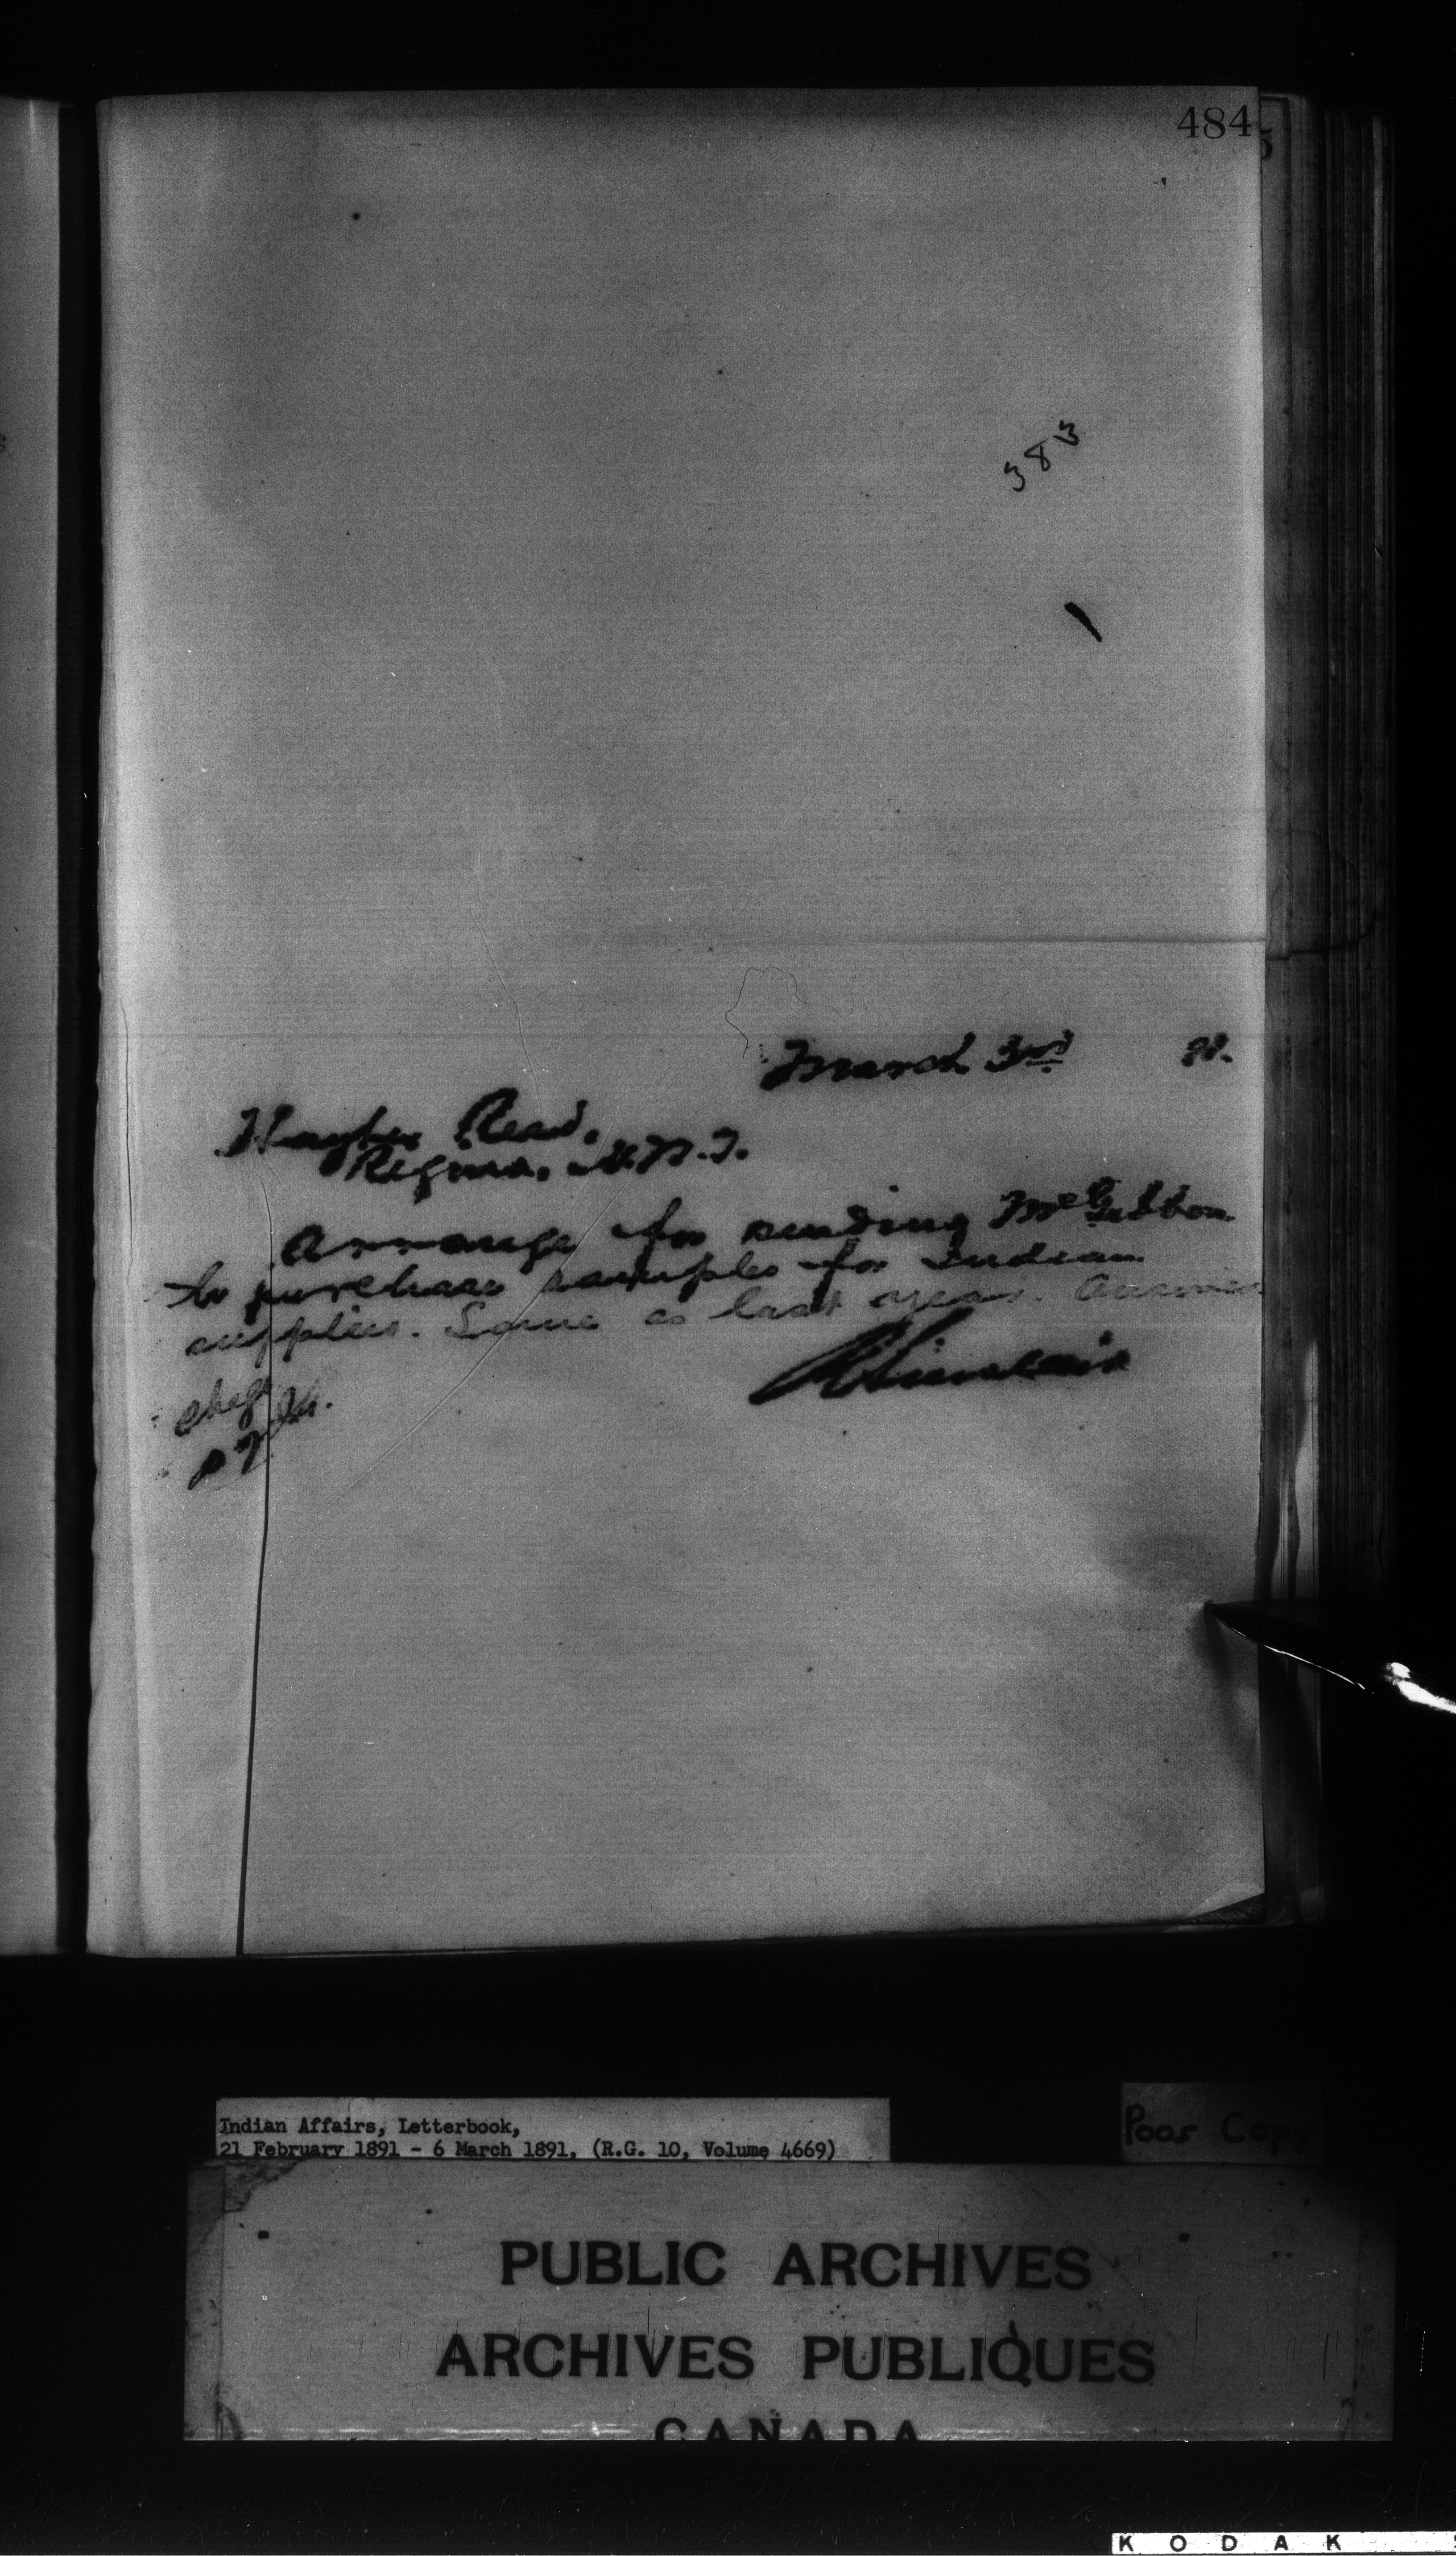 484
5
383
March 3rd 91.
Hayter Reed,
Regina, N.W.T.
Arrange for sending McGibbon
to purchase samples for Indian
supplies. Same as last year. Answer
Chg
Indian Affairs, Letterbook,
21 February 1891 - 6 March 1891, (R.G. 10, Volume 4669)
Poor Copy
PUBLIC ARCHIVES
ARCHIVES PUBLIQUES
CANADA
KODAK